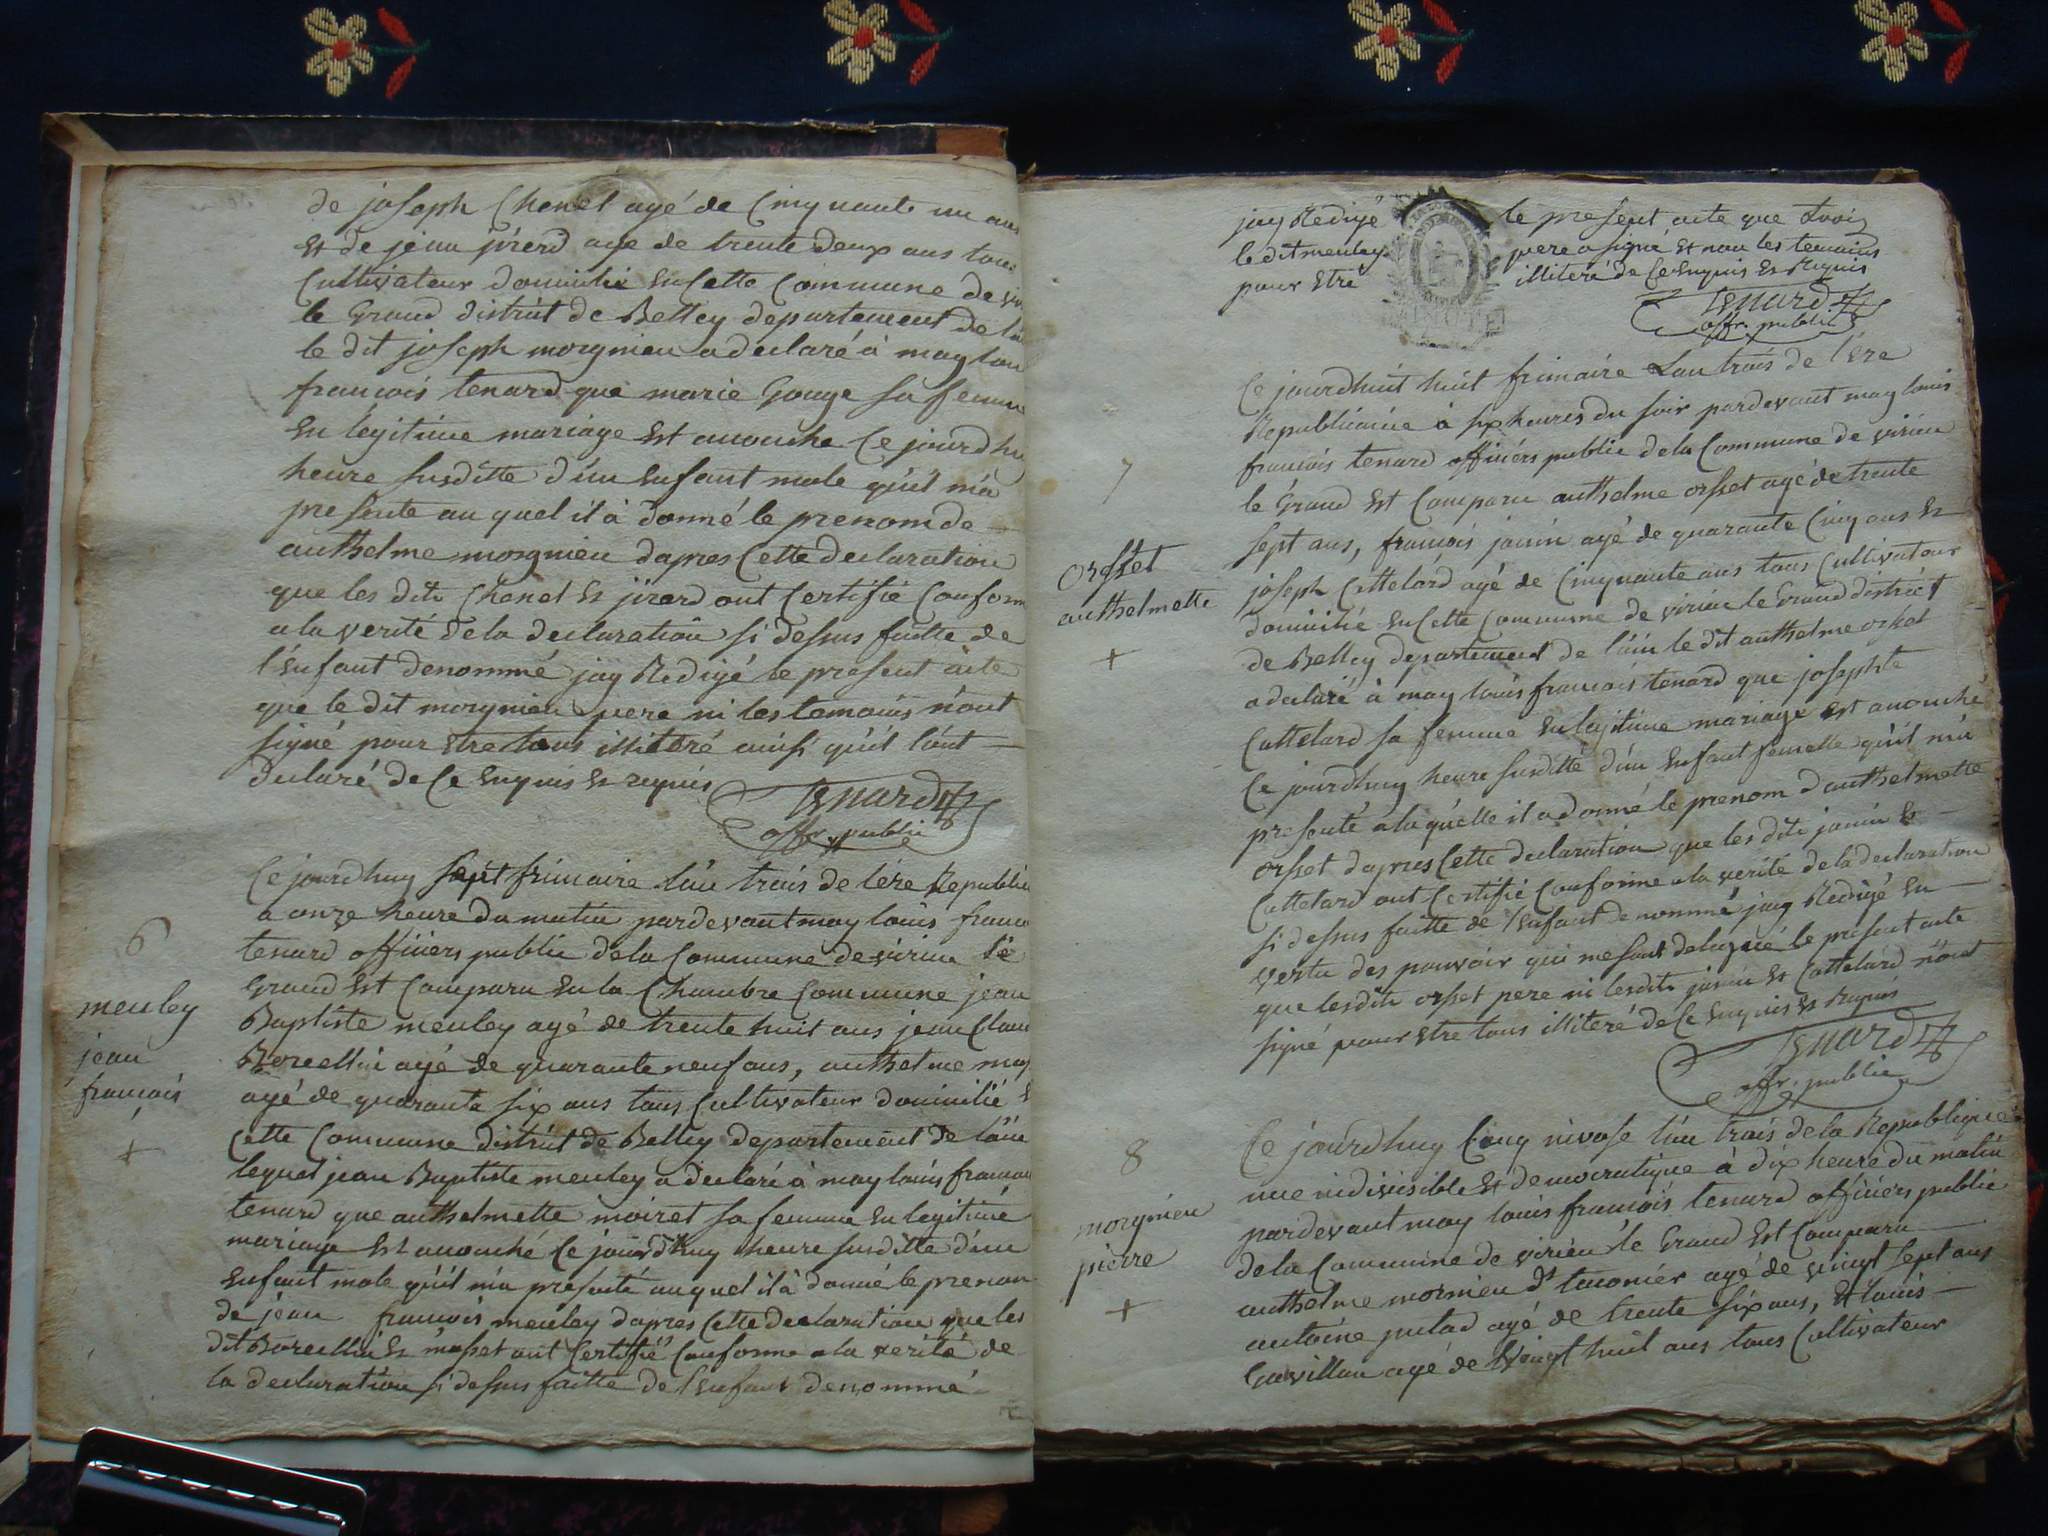 de joseph Chenel agé de Cinquante un ans
et de jean jirerd age de trente deux ans tous
Cultivateur domicilié en Cette Commune de vir
le Grand district de Belley departement de l'ain
le dit joseph morgnieu a declaré à moy loui
francois tenard que marie Gouge sa femme
en légitime mariage est acouché Ce jourdhu
heure susditte d'un enfant male qu'il m'a
presente au quel il à donné le prenom de
anthelme morgnieu dapres Cette declaration
que les dits Chenel et jirerd ont Certifié Conform
a la verité de la declaration si dessus faitte de
l'enfant denommé jay Redigé le present acte
que le dit morgnieu pere ni les temoins n'ont
signé pour etre tous illiteré ainsi qu'il l'ont
declaré de Ce enquis et requis
tenard
offr. public
6
meuley
jean
francois
+
Ce jourdhuy sept frimaire l'an trois de l'ére Republic
a onze heure du matin pardevant moy louis franco
tenard officiers public dela Commune de virieu le
Grand est Comparu en la Chambre Commune jean
Baptiste meuley agé de trente huit ans jean Clau
Borcellin agé de quarante neuf ans, anthelme mos
agé de quarante six ans tous Cultivateur domicilié e
Cette Commune district de Belley departement de l'ain
lequel jean Baptiste meuley a declaré à moy louis francoi
tenard que anthelmette moiret sa femme en legitime
mariage est acouché Ce jourdhuy heure susditte d'un
enfant male qu'il m'a presenté au quel il à donné le prenom
de jean francois meuley dapres Cette declaration que les
dit Borcellin et mosset ont Certifié Conforme a la vérité de
la declaration si dessus faitte de l'enfant denommé
jay Redigé le present acte que
le dit meuley pere a signé et non les temoins
pour etre illiteré de Ce enquis et Requis
tenard
offr. public
7
orsset
anthelmette
+
Ce jourdhuit huit frimaire L'an trois de l'ére
Republicaine à six heures du soir pardevant moy louis
francois tenard officiers public dela Commune de virieu
le Grand est Comparu anthelme orsset agé de trente
sept ans, francois janin agé de quarante Cinq ans et
joseph Cattelard agé de Cinquante ans tous Cultivateur
domicilié en Cette Commune de virieu le Grand district
de Belley departement de l'ain le dit anthelme orset
a declaré à moy louis francois tenard que josephte
Cattelard sa femme en legitime mariage est acouché
Ce jourdhuy heure susditte d'un enfant femelle qu'il m'a
presenté a la quelle il a donné le prenom d anthelmette
orsset dapres Cette declaration que les dits janin et
Cattelard ont Certifié Conforme a la verité de la declaration
si dessus faitte de l'enfant denommé jay Redigé en
vertu des pouvoir qui me sont delegué le present acte
que lesdits orsset pere ni lesdits janin et Cattelard n'ont
signé pour etre tous illiteré de Ce enquis et Requis
tenard
offr. public
8
morgnieu
pierre
+
Ce jourdhuy Cinq nivose l'an trois dela Republique
une indivisible et democratique à dix heure du matin
pardevant moy louis francois tenard officiers public
dela Commune de virieu le Grand est Comparu
anthelme mornieu dt agé de vingt sept ans
antoine agé de trente six ans, et louis
agé de vingt huit ans tous Cultivateur